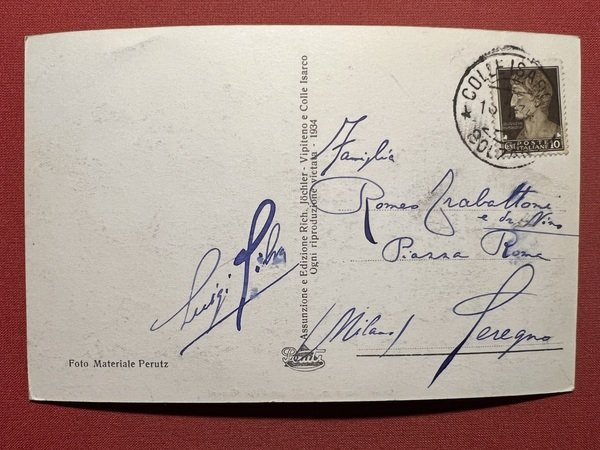 Assunzione e Edizione Rich. Jöchler - Vipiteno e Colle Isarco
Ogni riproduzione vietata - 1934
COLLE ISAR
POSTE
ITALIANE
10
Famiglia
Romeo Trabattoni
e Nino
Piazza Roma
(Milano) Seregno
Luigi
Foto Materiale Perutz